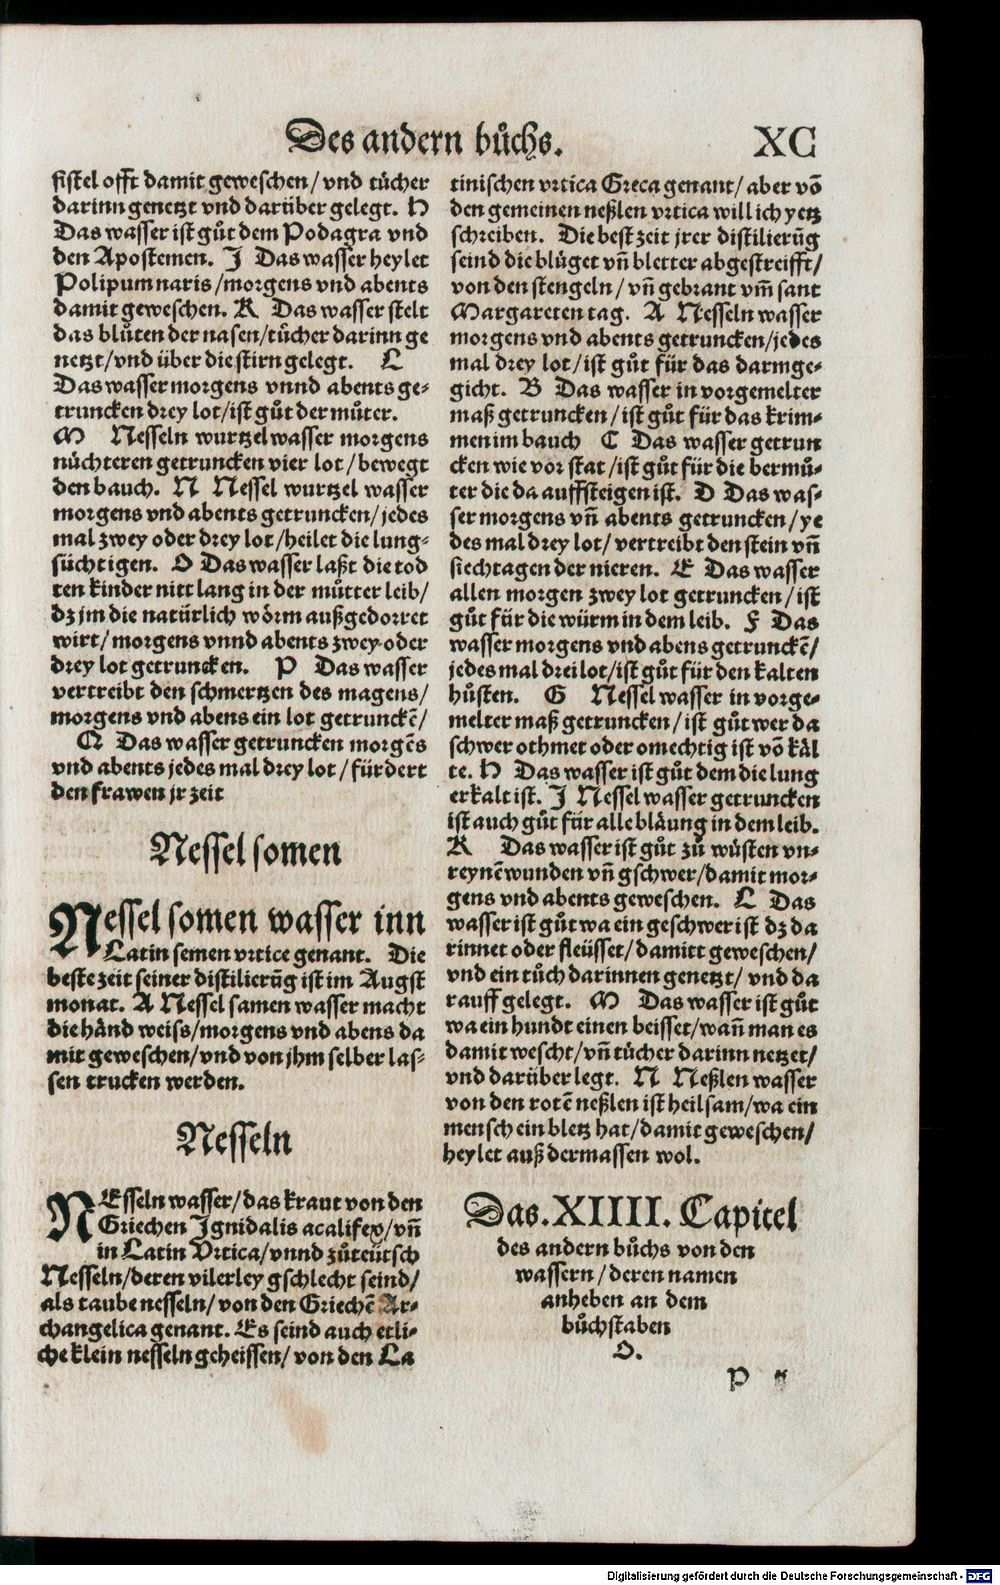 Des andern bůchs.
XC
fistel offt damit geweschen/ vnd tücher
darinn genetzt vnd darüber gelegt. H
Das wasser ist gůt dem Podagra vnd
den Apostemen. J Das wasser heylet
Polipum naris/morgens vnd abents
damit geweschen. K Das wasser stelt
das blůten der nasen/tücher darinn ge
netzt/vnd über die stirn gelegt. L
Das wasser morgens vnnd abents ge-
truncken drey lot/ist gůt der můter.
M Nesseln wurtzel wasser morgens
nůchteren getruncken vier lot/bewegt
den bauch. N Nessel wurtzel wasser
morgens vnd abents getruncken/jedes
mal zwey oder drey lot/heilet die lung-
süchtigen. O Das wasser laßt die tod
ten kinder nitt lang in der můtter leib/
dz jm die natürlich wörm außgedorret
wirt/morgens vnnd abents zwey oder
drey lot getruncken. P Das wasser
vertreibt den schmertzen des magens/
morgens vnd abens ein lot getrunckē/
Q Das wasser getruncken morgēs
vnd abents jedes mal drey lot/fürdert
den frawen jr zeit
Nessel somen
Nessel somen wasser inn
Latin semen vrtice genant. Die
beste zeit seiner distilierũg ist im Augst
monat. A Nessel samen wasser macht
die händ weiss/morgens vnd abens da
mit geweschen/vnd von jhm selber las-
sen trucken werden.
Nesseln
NEsseln wasser/das kraut von den
Griechen Ignidalis acalifex/vñ
in Latin Vrtica/vnnd zůteütsch
Nesseln/deren vilerley gschlecht seind/
als taube nesseln/von den Griechē Ar-
changelica genant. Es seind auch etli-
che klein nesseln geheissen/von den La
tinischen vrtica Greca genant/aber vō
den gemeinen neßlen vrtica will ich yetz
schreiben. Die best zeit jrer distilierũg
seind die blüget vñ bletter abgestreifft/
von den stengeln/vñ gebrant vm̃ sant
Margareten tag. A Nesseln wasser
morgens vnd abents getruncken/jedes
mal drey lot/ist gůt für das darmge-
gicht. B Das wasser in vorgemelter
maß getruncken/ist gůt für das krim-
men im bauch C Das wasser getrun
cken wie vor stat/ist gůt für die bermů-
ter die da auffsteigen ist. D Das was-
ser morgens vñ abents getruncken/ye
des mal drey lot/vertreibt den stein vñ
siechtagen der nieren. E Das wasser
allen morgen zwey lot getruncken/ist
gůt für die würm in dem leib. F Das
wasser morgens vnd abens getrunckē/
jedes mal drei lot/ist gůt für den kalten
hůsten. G Nessel wasser in vorge-
melter maß getruncken/ist gůt wer da
schwer othmet oder omechtig ist vō käl
te. H Das wasser ist gůt dem die lung
erkalt ist. J Nessel wasser getruncken
ist auch gůt für alle bläung in dem leib.
K Das wasser ist gůt zů wůsten vn-
reynē wunden vñ gschwer/damit mor-
gens vnd abents geweschen. L Das
wasser ist gůt wa ein geschwer ist dz da
rinnet oder fleüsset/damitt geweschen/
vnd ein tůch darinnen genetzt/vnd da
rauff gelegt. M Das wasser ist gůt
wa ein hundt einen beisset/wañ man es
damit wescht/vñ tůcher darinn netzet/
vnd darüber legt. N Neßlen wasser
von den rotē neßlen ist heilsam/wa ein
mensch ein bletz hat/damit geweschen/
heylet auß dermassen wol.
Das. XIIII. Capitel
des andern bůchs von den
wassern/deren namen
anheben an dem
bůchstaben
O.
P
Digitalisierung gefördert durch die Deutsche Forschungsgemeinschaft - DFG